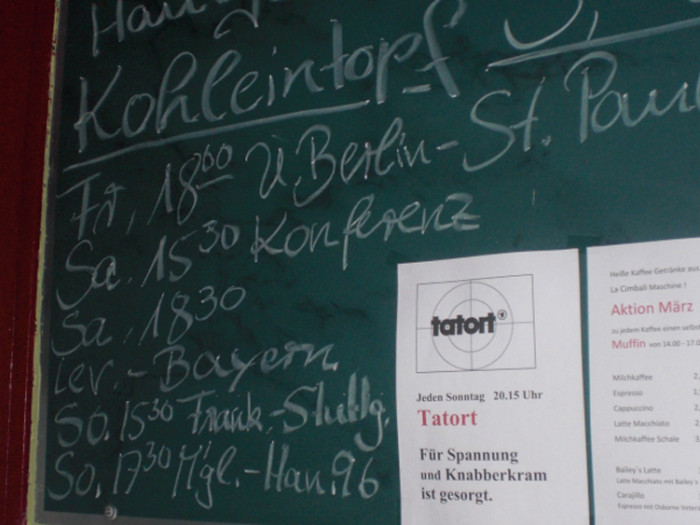 Kohleintopf
Fr, 18⁰⁰ U. Berlin - St. Pau
Sa. 15³⁰ Konferenz
Sa. 18³⁰
Lev. - Bayern
So. 15³⁰ Frank. - Stuttg.
So. 17³⁰ M'gl. - Han. 96
tatort
Jeden Sonntag 20.15 Uhr
Tatort
Für Spannung
und Knabberkram
ist gesorgt.
Heiße Kaffee Getränke aus
La Cimbali Maschine !
Aktion März
zu jedem Kaffee einen selbst
Muffin von 14.00 - 17.0
Milchkaffee 2,
Espresso 1,
Cappuccino 2,
Latte Macchiato 2,
Milchkaffee Schale 3,
Bailey's Latte
Latte Macchiato mit Bailey's
Carajillo
Espresso mit Osborne